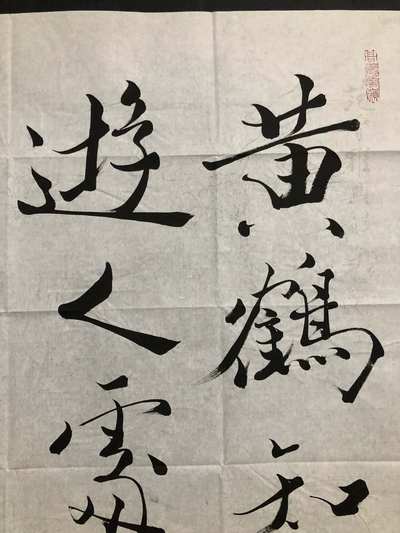 黄鶴知
遊人處